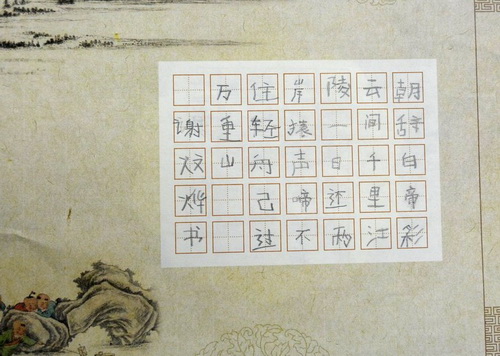 朝辞白帝彩
云间千里江
陵一日还两
岸猿声啼不
住轻舟已过
万重山
谢炆烨书